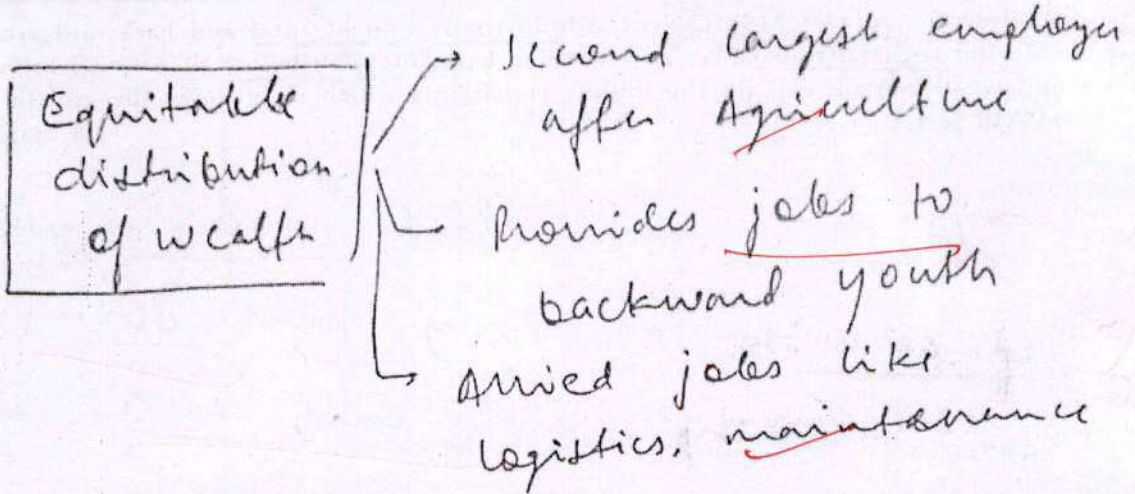 Equitable
distribution
of wealth
Second largest employer
after Agriculture
Provides jobs to
backward youth
Allied jobs like
logistics, maintenance